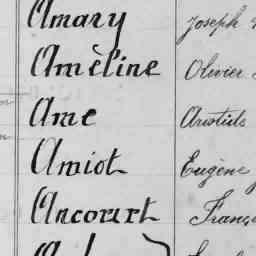 Amary Joseph
Amèline Olivier
Ame Aristide
Amiot Eugène
Ancourt Franç